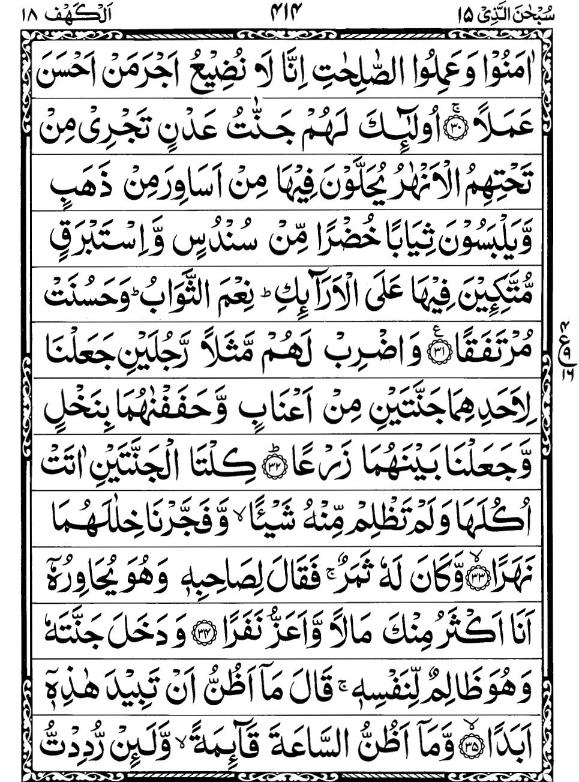 سُبْحٰنَ الَّذِیْۤ ۱۵ ۴۱۴ اَلْكَهْف ۱۸
اٰمَنُوْا وَعَمِلُوا الصّٰلِحٰتِ اِنَّا لَا نُضِیْعُ اَجْرَ مَنْ اَحْسَنَ
عَمَلًا ۚ﴿۳۰﴾ اُولٰٓئِكَ لَهُمْ جَنّٰتُ عَدْنٍ تَجْرِیْ مِنْ
تَحْتِهِمُ الْاَنْهٰرُ یُحَلَّوْنَ فِیْهَا مِنْ اَسَاوِرَ مِنْ ذَهَبٍ
وَّیَلْبَسُوْنَ ثِیَابًا خُضْرًا مِّنْ سُنْدُسٍ وَّاِسْتَبْرَقٍ
مُّتَّكِـِٕیْنَ فِیْهَا عَلَی الْاَرَآىِٕكِ ؕ نِعْمَ الثَّوَابُ ؕ وَحَسُنَتْ
مُرْتَفَقًا ﴿۳۱﴾ ع وَاضْرِبْ لَهُمْ مَّثَلًا رَّجُلَیْنِ جَعَلْنَا
۴ ع ۹ ۱۶
لِاَحَدِهِمَا جَنَّتَیْنِ مِنْ اَعْنَابٍ وَّحَفَفْنٰهُمَا بِنَخْلٍ
وَّجَعَلْنَا بَیْنَهُمَا زَرْعًا ﴿۳۲﴾ؕ كِلْتَا الْجَنَّتَیْنِ اٰتَتْ
اُكُلَهَا وَلَمْ تَظْلِمْ مِّنْهُ شَیْـًٔا ۙ وَّفَجَّرْنَا خِلٰلَهُمَا
نَهَرًا ﴿۳۳﴾ۙ وَّكَانَ لَهٗ ثَمَرٌ ۚ فَقَالَ لِصَاحِبِهٖ وَهُوَ یُحَاوِرُهٗۤ
اَنَا اَكْثَرُ مِنْكَ مَالًا وَّاَعَزُّ نَفَرًا ﴿۳۴﴾ وَدَخَلَ جَنَّتَهٗ
وَهُوَ ظَالِمٌ لِّنَفْسِهٖ ۚ قَالَ مَاۤ اَظُنُّ اَنْ تَبِیْدَ هٰذِهٖۤ
اَبَدًا ﴿۳۵﴾ۙ وَّمَاۤ اَظُنُّ السَّاعَةَ قَآىِٕمَةً ۙ وَّلَىِٕنْ رُّدِدْتُّ